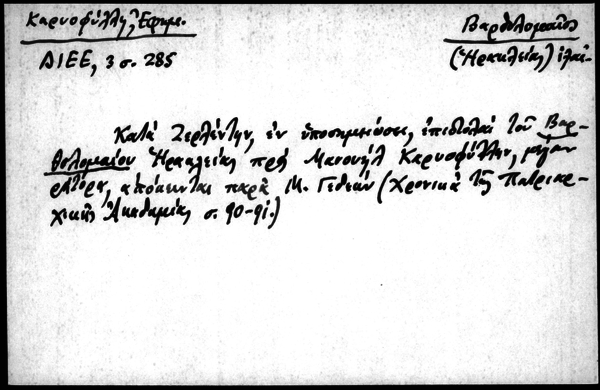 Καρυοφύλλης, Εφημ.
Βαρθολομαῖος
ΔΙΕΕ, 3 σ. 285
(Ἡρακλείας)
Κατὰ Ζερλέντην, ἐν ὑποσημειώσει, ἐπιστολαὶ τοῦ Βαρ-
θολομαίου Ἡρακλείας πρὸς Μανουὴλ Καρυοφύλλην, μέγαν
ρήτορα, ἀπόκεινται παρὰ Μ. Γεδεών (Χρονικὰ τῆς Πατριαρ-
χικῆς Ἀκαδημίας σ. 90-91.)